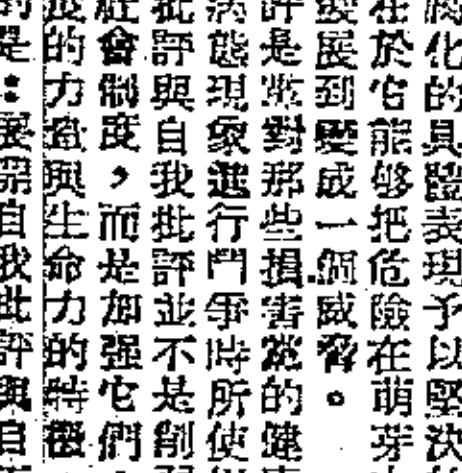 腐化的具體表現予以堅決
在於它能够把危險在萌芽
發展到變成一個威脅。
評是對那些損害黨的健
病態現象進行鬥爭時所使
批評與自我批評並不是削
社會制度,而是加强它們
的力量與生命力的特徵
的是:展開自我批評與自